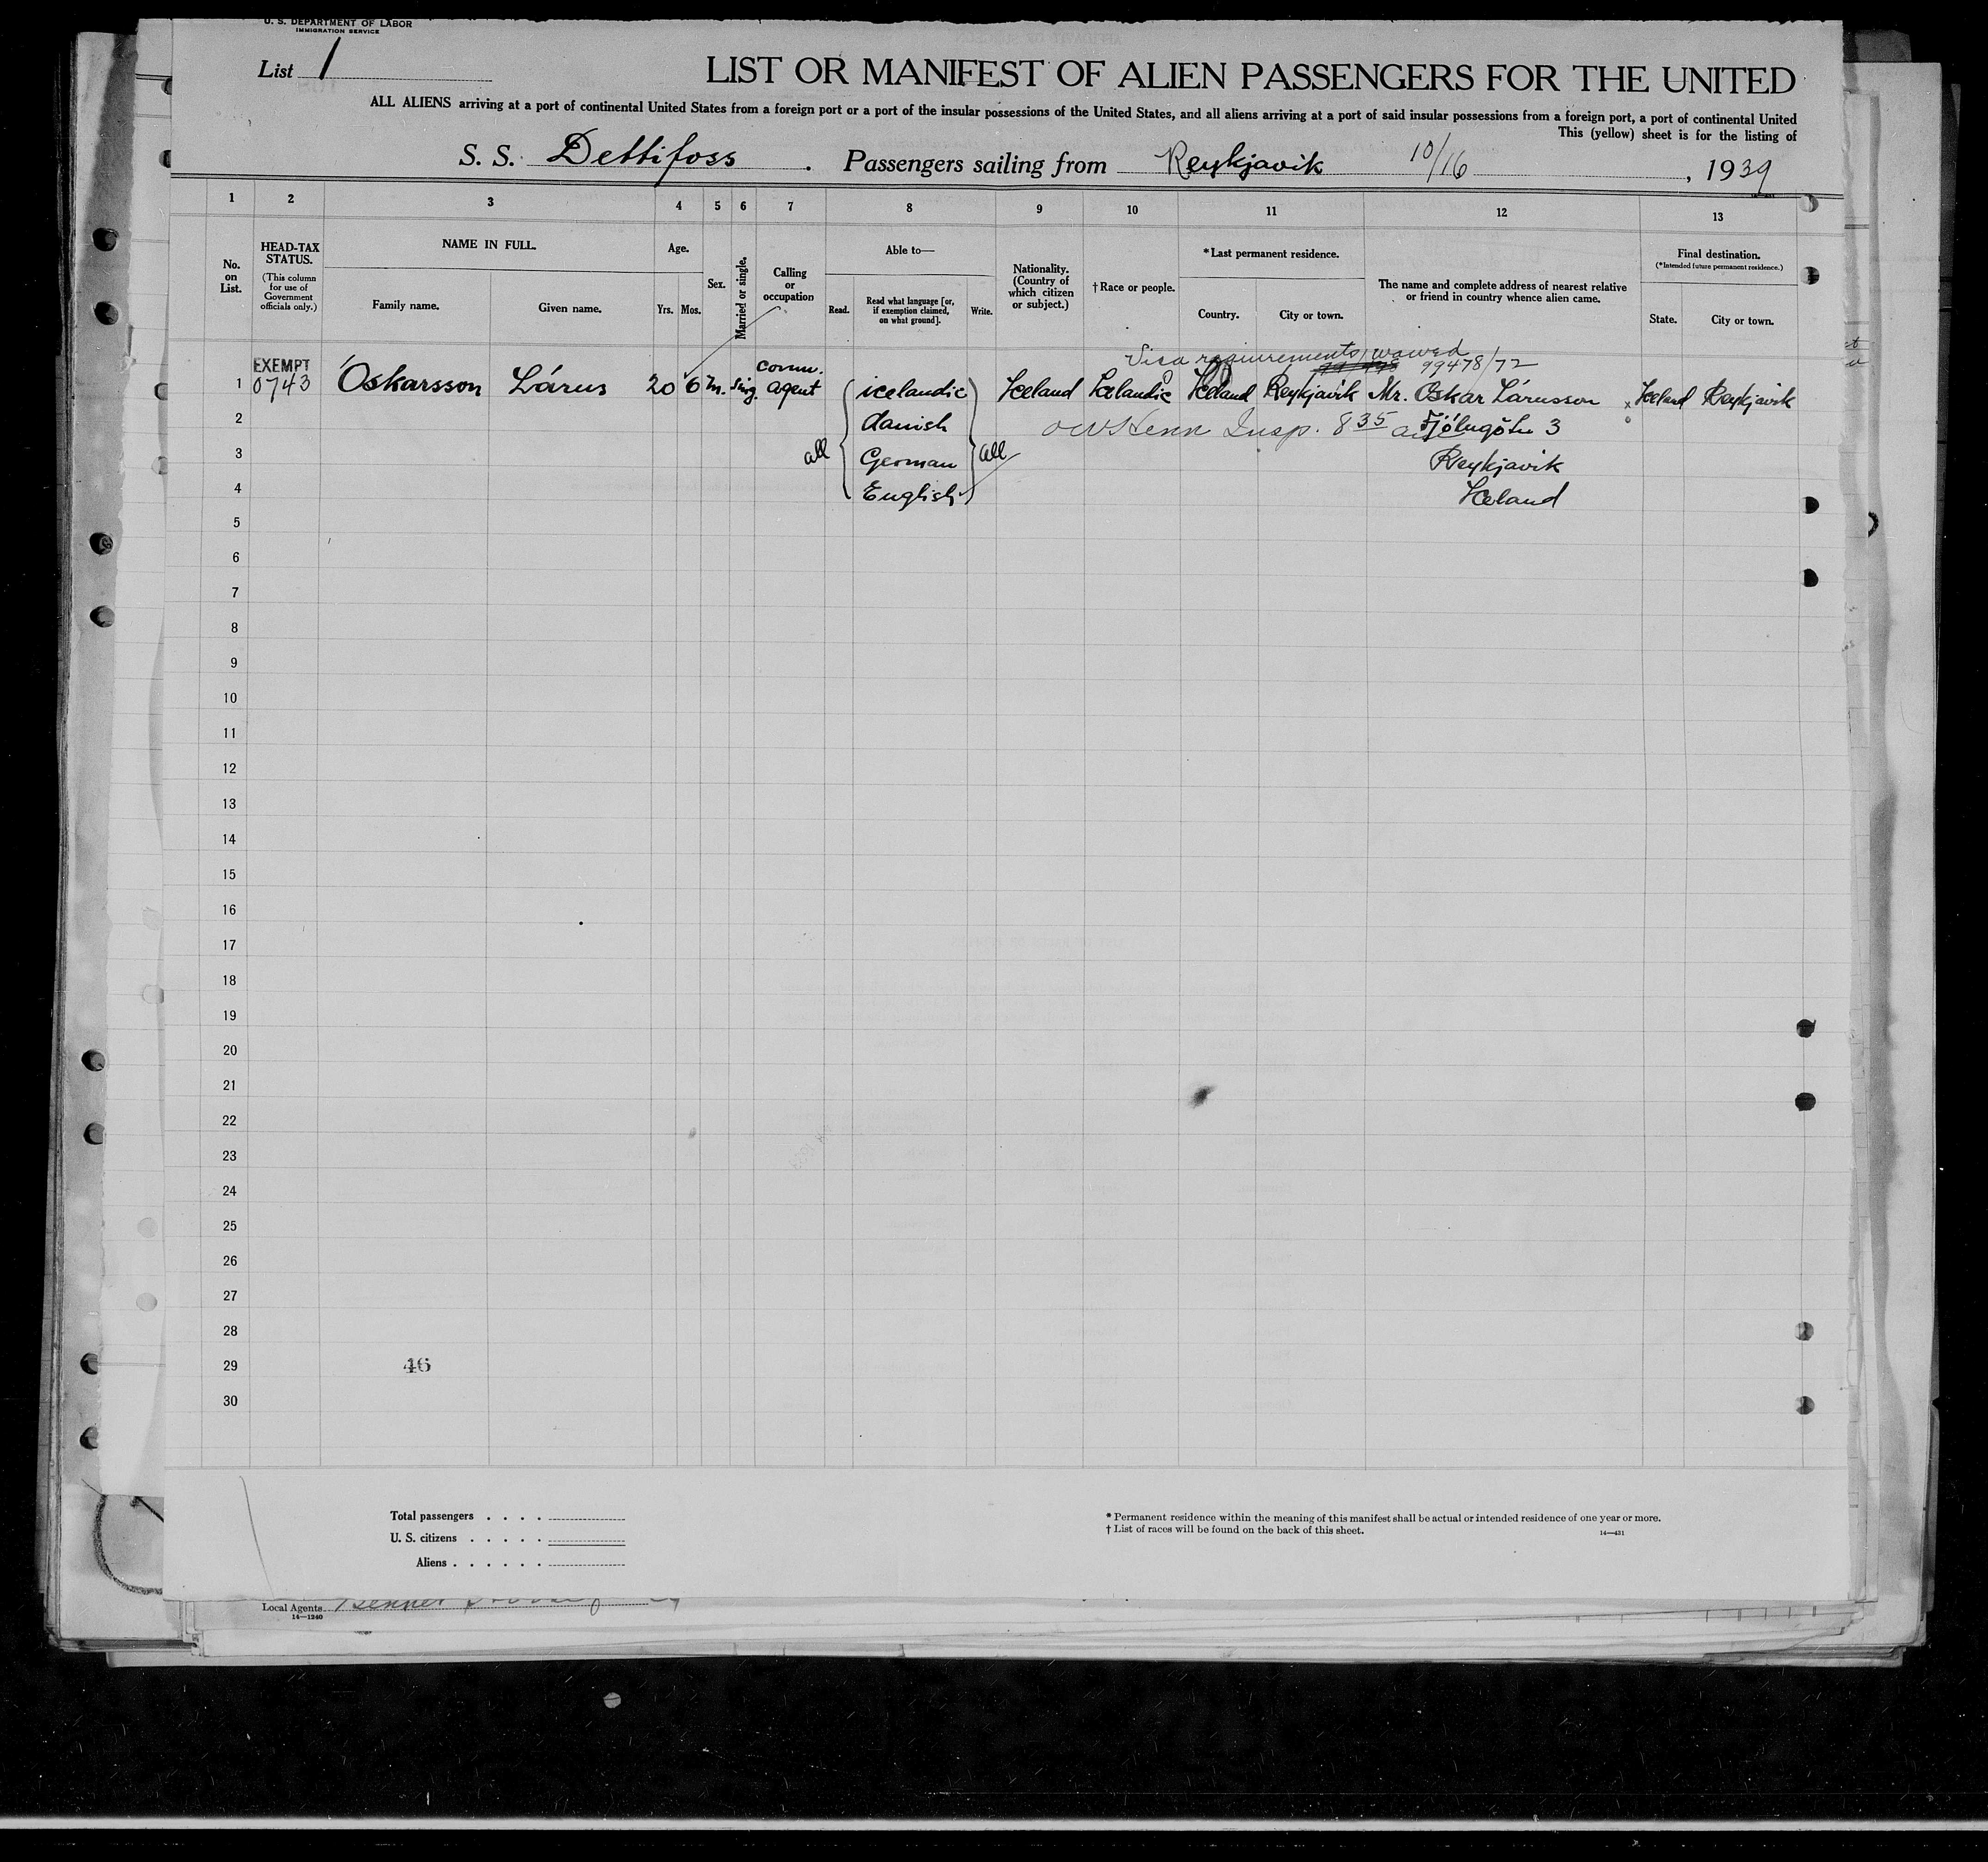 U. S. DEPARTMENT OF LABOR
IMMIGRATION SERVICE
List 1
LIST OR MANIFEST OF ALIEN PASSENGERS FOR THE UNITED
ALL ALIENS arriving at a port of continental United States from a foreign port or a port of the insular possessions of the United States, and all aliens arriving at a port of said insular possessions from a foreign port, a port of continental United
This (yellow) sheet is for the listing of
S. S. Dettifoss. Passengers sailing from Reykjavik 10/16, 1939
1 2 3 4 5 6 7 8 9 10 11 12 13
No. on List.
HEAD-TAX STATUS.
(This column for use of Government officials only.)
NAME IN FULL.
Family name. Given name.
Age.
Yrs. Mos.
Sex.
Married or single.
Calling or occupation
Able to—
Read. Read what language [or, if exemption claimed, on what ground]. Write.
Nationality. (Country of which citizen or subject.)
†Race or people.
*Last permanent residence.
Country. City or town.
The name and complete address of nearest relative or friend in country whence alien came.
Final destination.
(*Intended future permanent residence.)
State. City or town.
Visa requirements waived
99478/72
EXEMPT comm.
1 0743 Óskarsson Lárus 20 6 m. sing. agent icelandic Iceland Icelandic Iceland Reykjavik Mr. Oskar Lárusson Iceland Reykjavik
2 danish Insp. 8 35 Fjólugötu 3
3 all German all Reykjavik
4 English Iceland
5
6
7
8
9
10
11
12
13
14
15
16
17
18
19
20
21
22
23
24
25
26
27
28
29 46
30
Total passengers . . . .
U. S. citizens . . . . .
Aliens . . . . . .
* Permanent residence within the meaning of this manifest shall be actual or intended residence of one year or more.
† List of races will be found on the back of this sheet. 14—431
Local Agents
14—1240